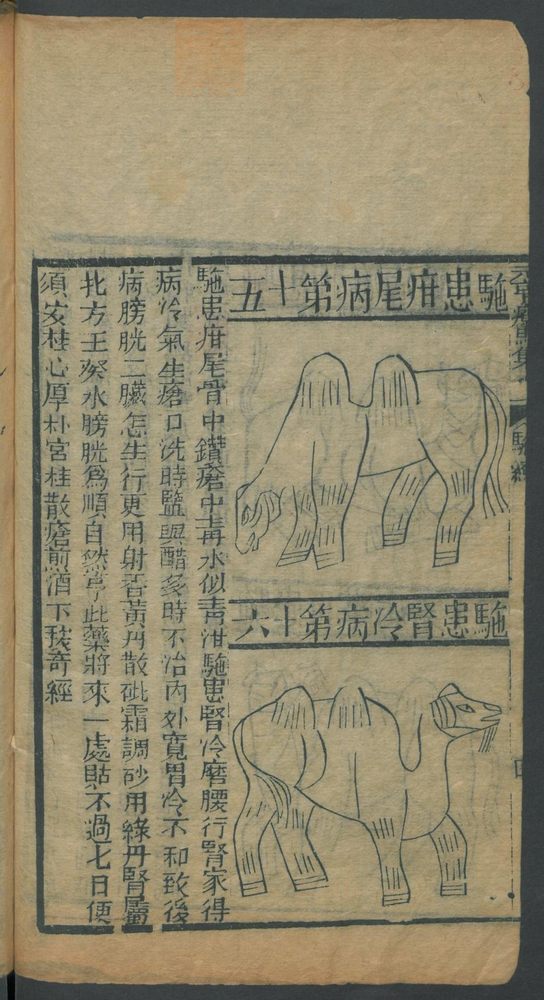 駞經
駞患疳尾病第十五
駞患腎冷病第十六
駞患疳尾骨中鑽瘡中青水似青泔駞患腎冷磨腰行腎家得
病冷氣生瘡口洗時鹽與醋多時不治內外寛胃冷不和致後
病膀胱二臟怎生行更用射香黃丹散砒霜調砂用綠丹腎屬
北方壬癸水膀胱爲順自然亨此藥將來一處貼不過七日便
須安桂心厚朴官桂散瘡煎酒下奇經